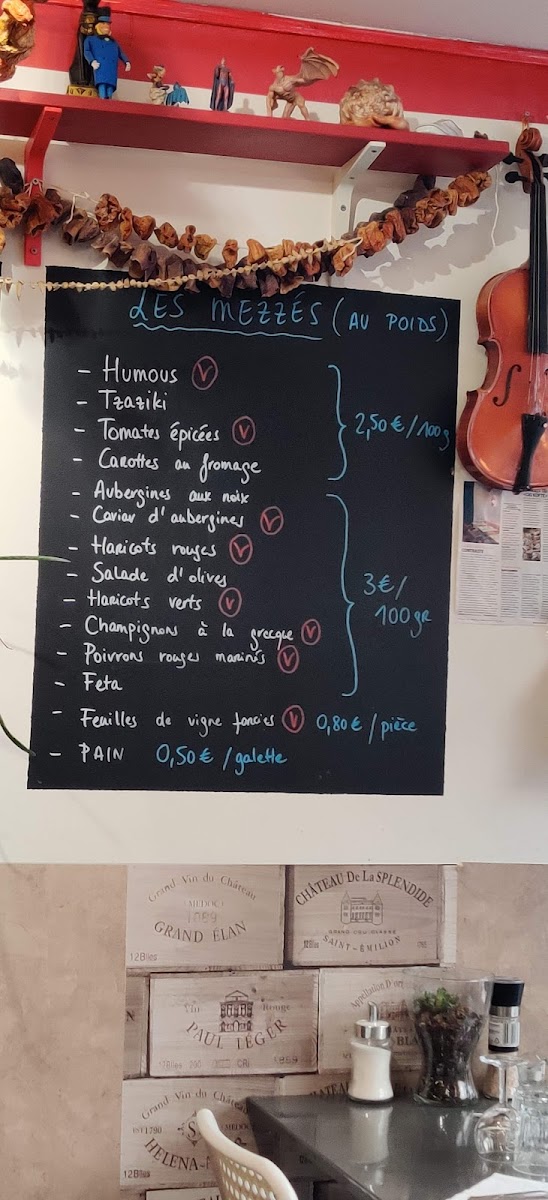 LES MEZZÉS (AU POIDS)
- Humous Ⓥ
- Tzaziki
- Tomates épicées Ⓥ
- Carottes au fromage
2,50 € / 100 g
- Aubergines aux noix
- Caviar d'aubergines Ⓥ
- Haricots rouges Ⓥ
- Salade d'olives
- Haricots verts Ⓥ
- Champignons à la grecque Ⓥ
- Poivrons rouges marinés Ⓥ
- Feta
3 € /
100 gr
- Feuilles de vigne farcies Ⓥ 0,80 € / pièce
- PAIN 0,50 € / galette
Grand Vin du Château
MEDOC
1989
GRAND ÉLAN
12Blles
CHÂTEAU De La SPLENDIDE
SAINT-ÉMILION
Vin Rouge
PAUL LÉGER
12Blles
Appellation
Grand Vin du Château
MEDOC
HELENA
12Blles